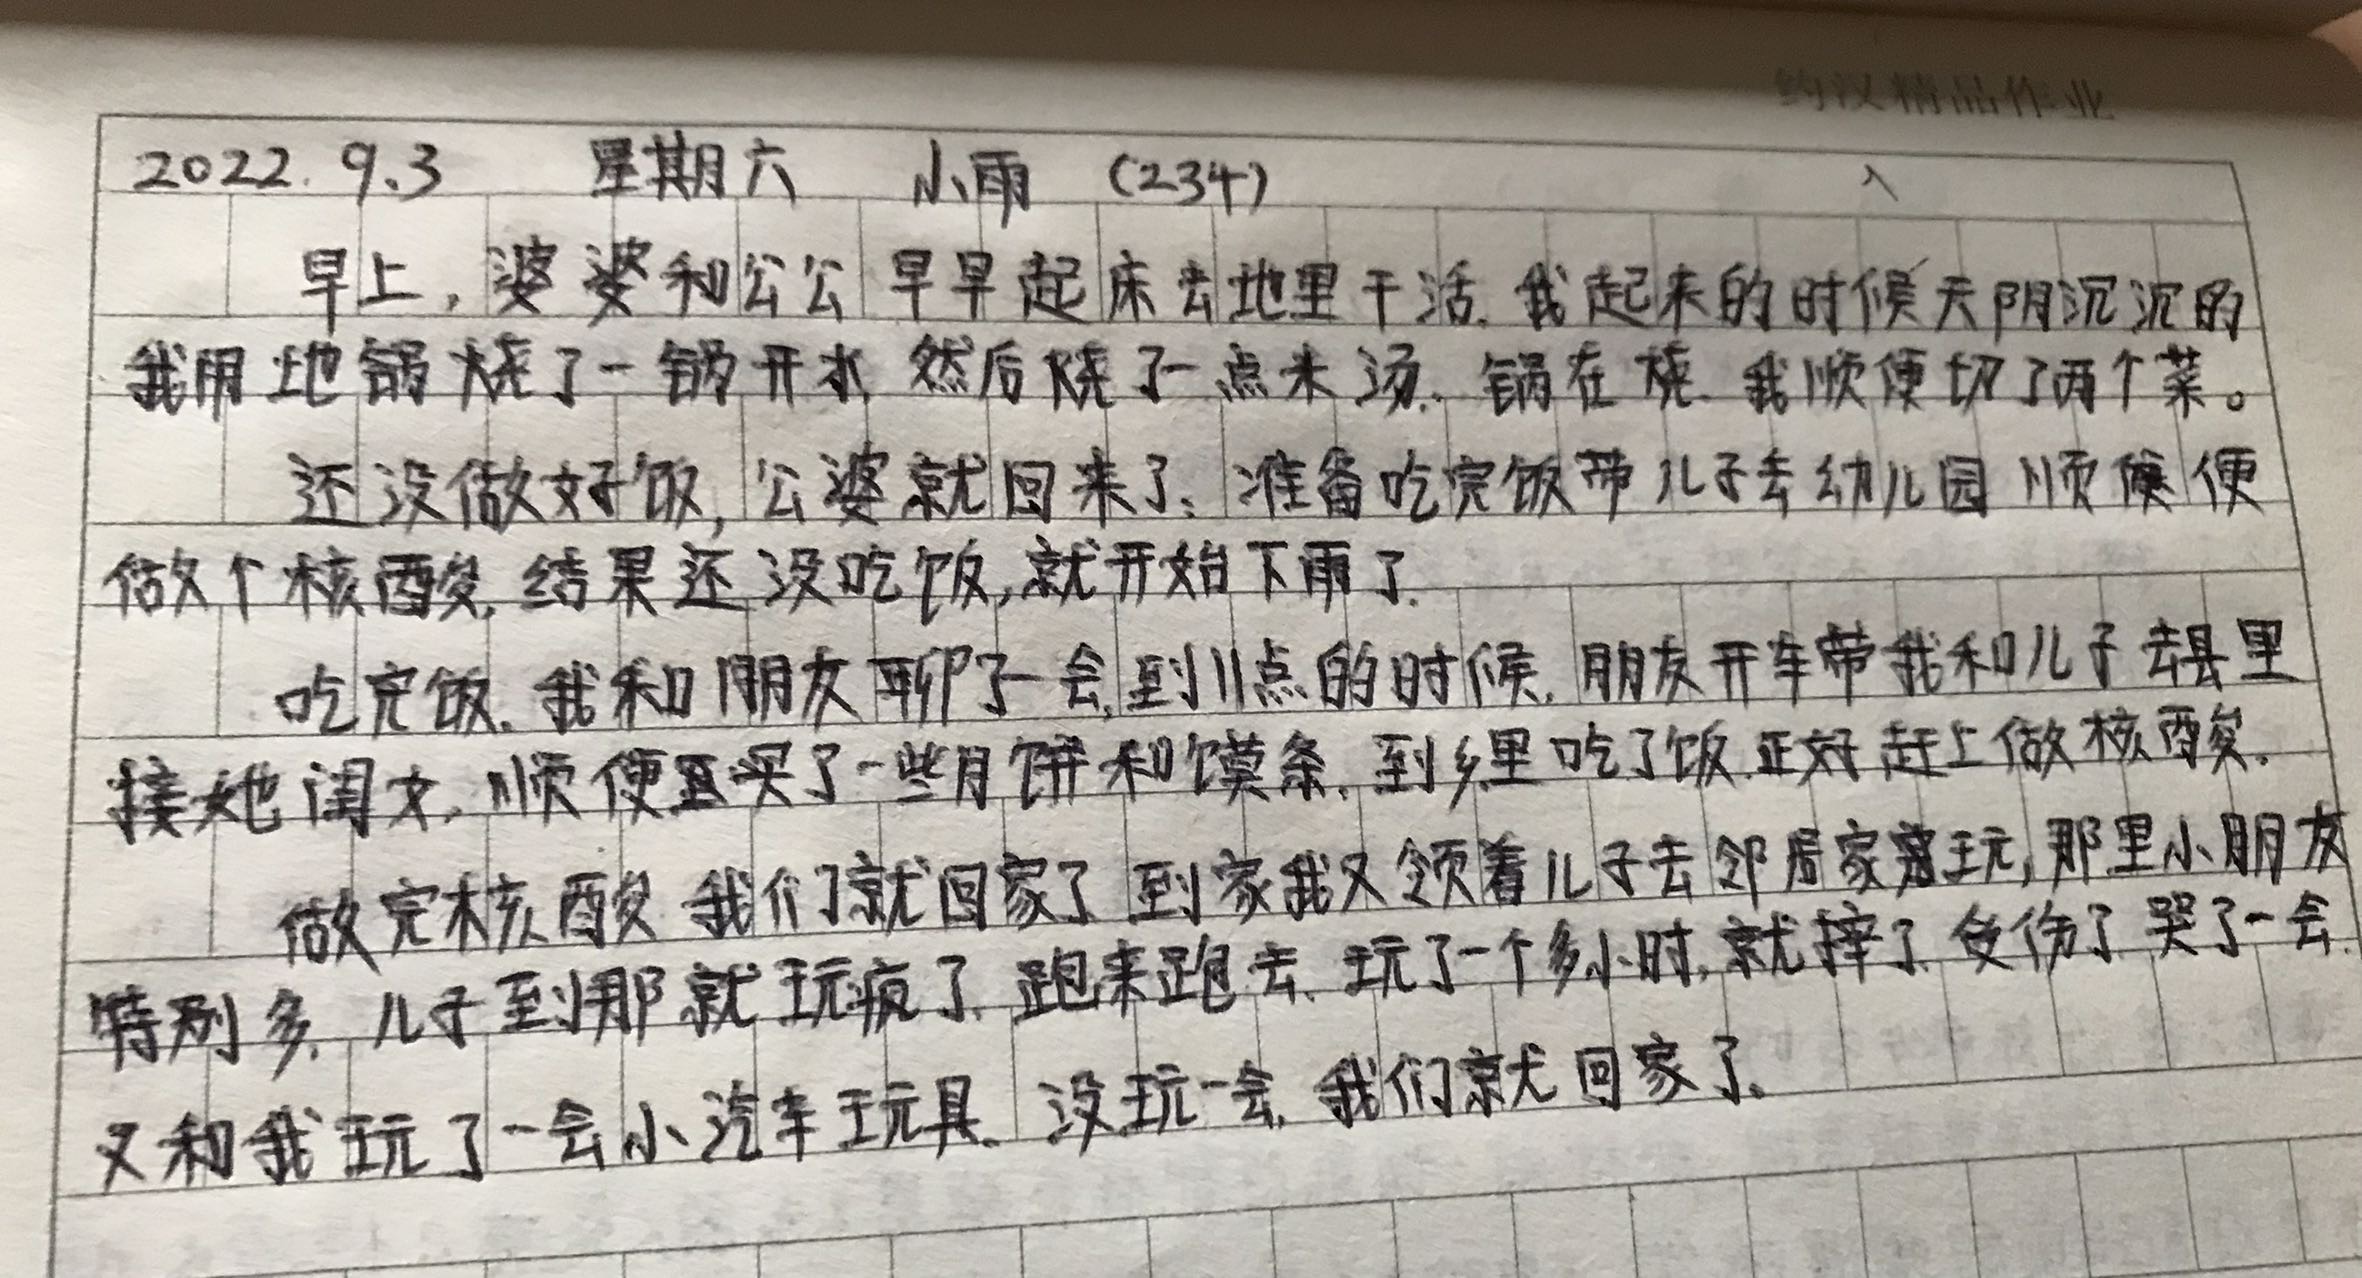 约汉精品作业
2022.9.3 星期六 小雨 (234)
早上,婆婆和公公早早起床去地里干活.我起来的时候天阴沉沉的
我用地锅烧了一锅开水,然后烧了一点米汤.锅在烧.我顺便切了两个菜。
还没做好饭,公婆就回来了.准备吃完饭带儿子去幼儿园顺便
做个核酸.结果还没吃饭,就开始下雨了.
吃完饭.我和朋友聊了一会,到11点的时候.朋友开车带我和儿子去县里
接她闺女.顺便买了一些月饼和馍条.到乡里吃了饭.正好赶上做核酸.
做完核酸.我们就回家了.到家我又领着儿子去邻居家玩,那里小朋友
特别多.儿子到那就玩疯了.跑来跑去.玩了一个多小时,就摔了.受伤了.哭了一会.
又和我玩了一会小汽车玩具.没玩一会.我们就回家了.